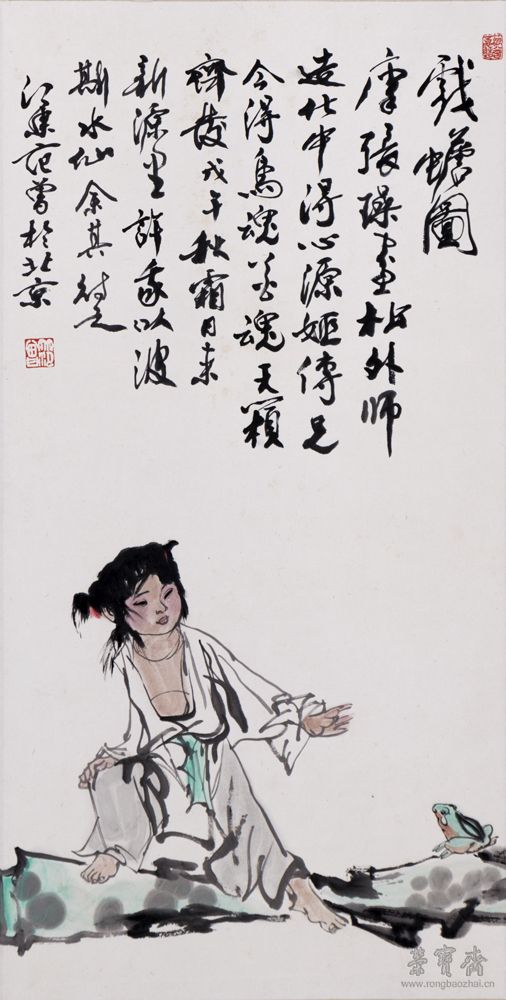 戲蟾圖
唐張璪畫松外師
造化中得心源姬傳兄
今得鳥魂花魂天籟
齊發戊午秋霜月来
新源里許我以波
斯水仙余其待之
江東范曾於北京
榮寶齋
www.rongbaozhai.cn